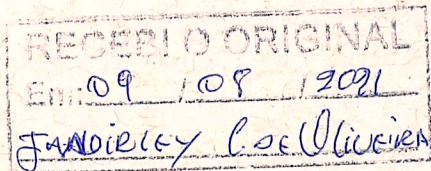 RECEBI O ORIGINAL
Em: 09 / 08 / 2021
JANDIRLEY C. DE OLIVEIRA